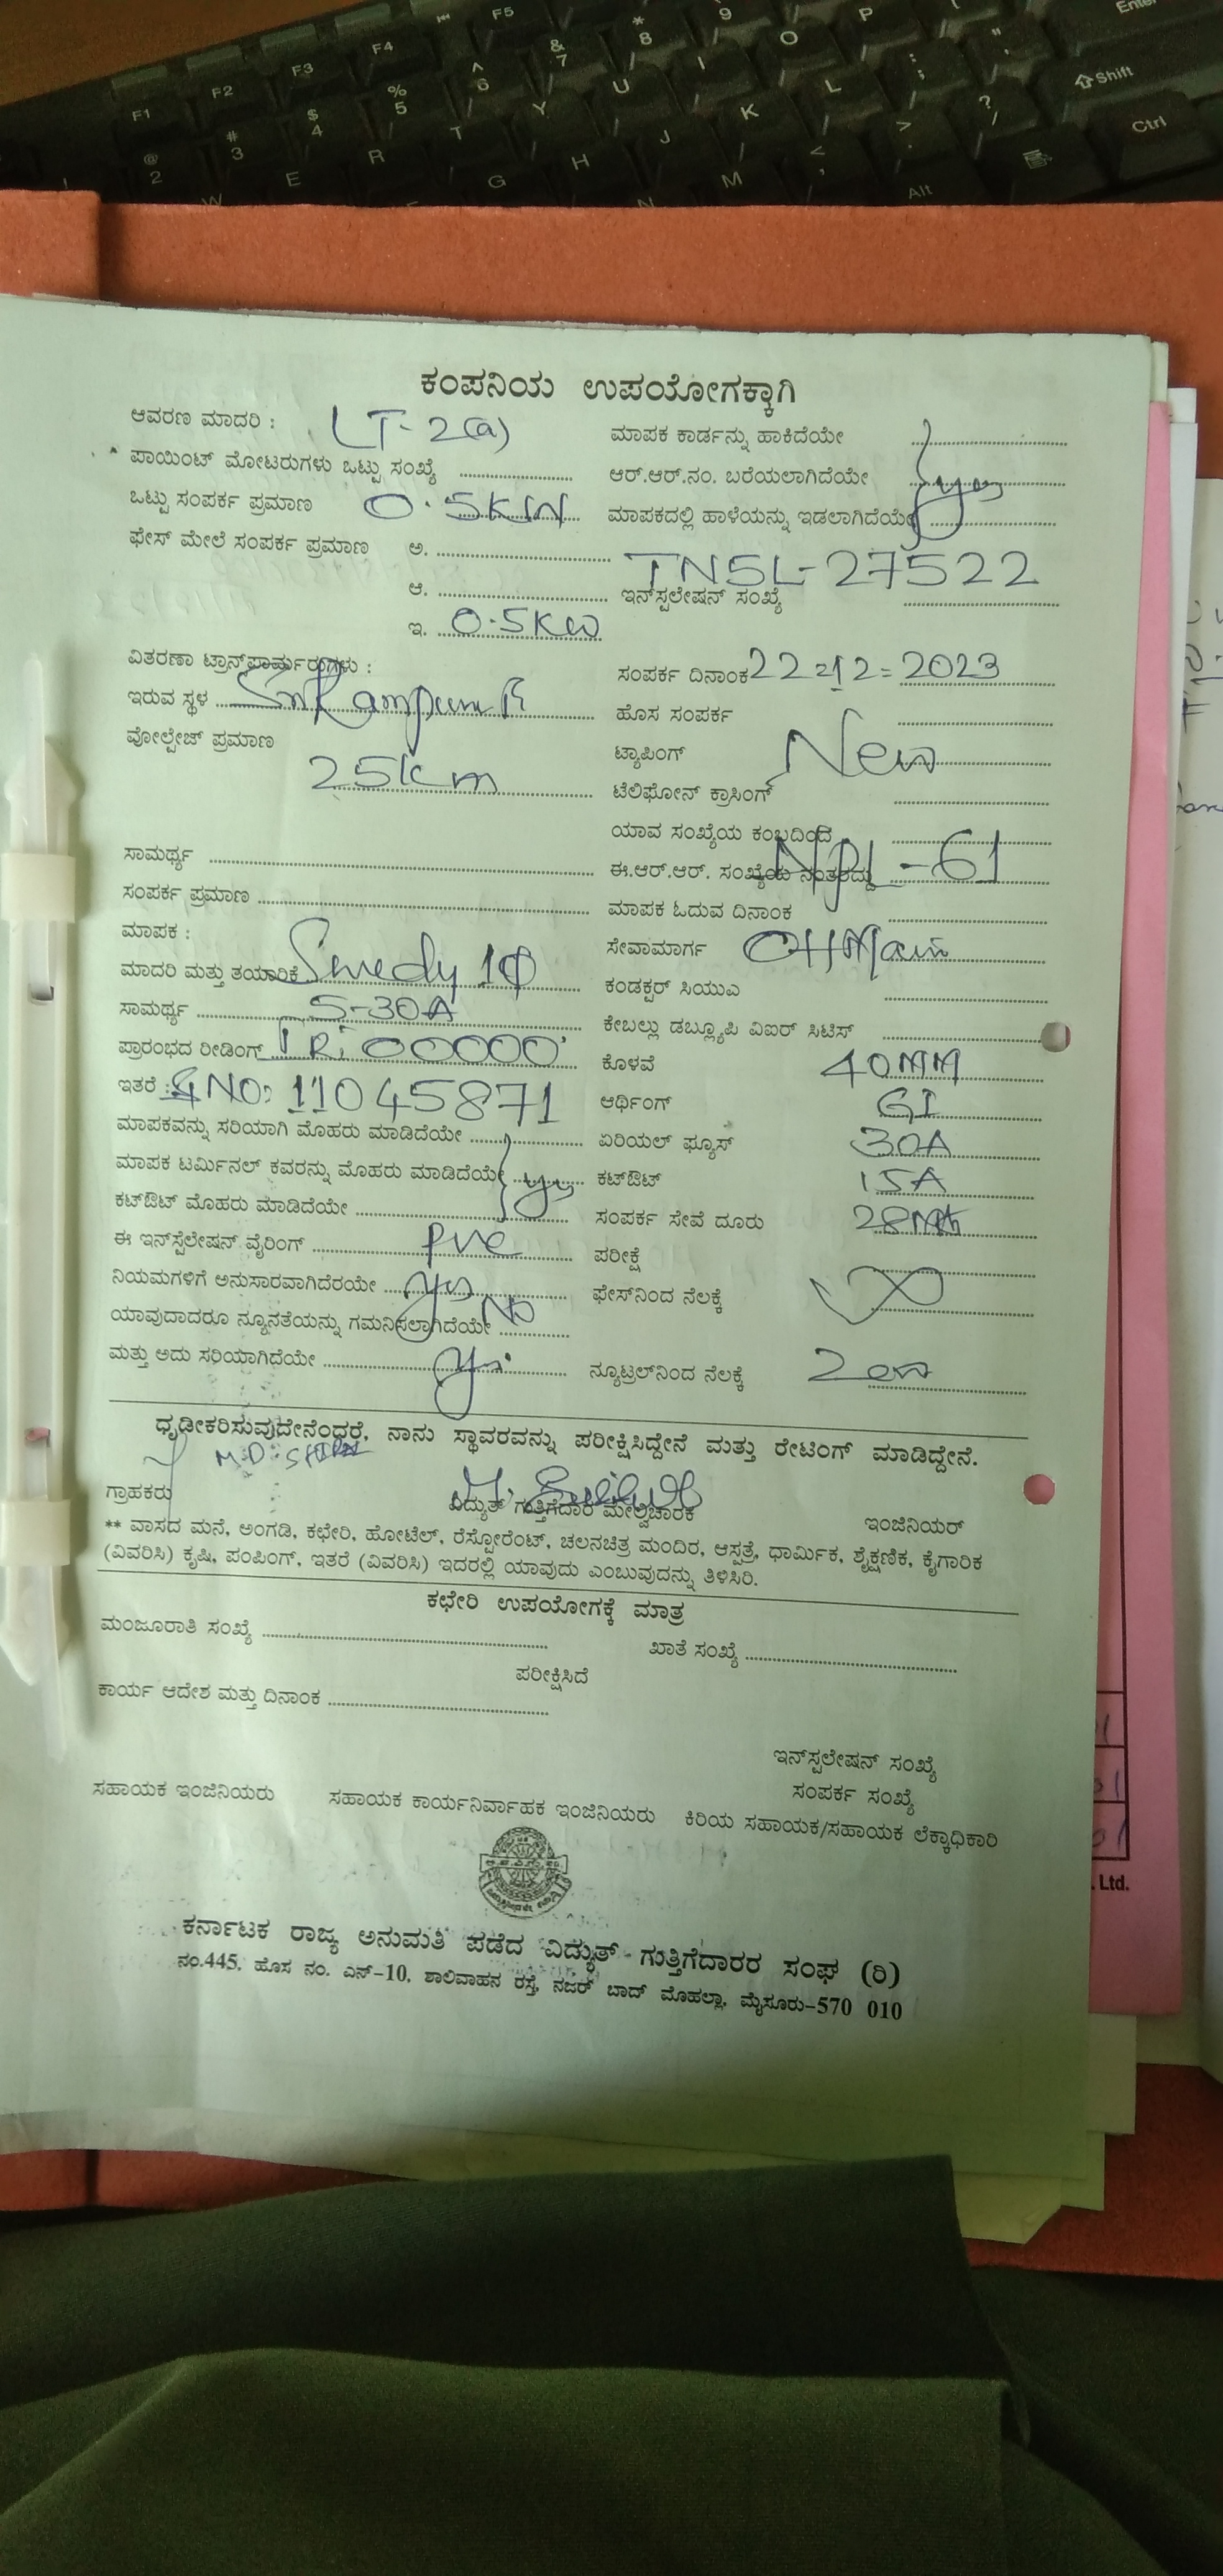 ಕಂಪನಿಯ ಉಪಯೋಗಕ್ಕಾಗಿ
ಆವರಣ ಮಾದರಿ : LT-2(a)
* ಪಾಯಿಂಟ್ ಮೋಟರುಗಳು ಒಟ್ಟು ಸಂಖ್ಯೆ
ಒಟ್ಟು ಸಂಪರ್ಕ ಪ್ರಮಾಣ 0.5KW
ಫೇಸ್ ಮೇಲೆ ಸಂಪರ್ಕ ಪ್ರಮಾಣ ಅ.
ಆ.
ಇ. 0.5KW
ವಿತರಣಾ ಟ್ರಾನ್ಸ್‌ಫಾರ್ಮರುಗಳು :
ಇರುವ ಸ್ಥಳ
ವೋಲ್ಟೇಜ್ ಪ್ರಮಾಣ
25km
ಸಾಮರ್ಥ್ಯ
ಸಂಪರ್ಕ ಪ್ರಮಾಣ
ಮಾಪಕ :
ಮಾದರಿ ಮತ್ತು ತಯಾರಿಕೆ 1Φ
ಸಾಮರ್ಥ್ಯ 5-30A
ಪ್ರಾರಂಭದ ರೀಡಿಂಗ್ IR: 00000
ಇತರೆ : SNO: 11045871
ಮಾಪಕವನ್ನು ಸರಿಯಾಗಿ ಮೊಹರು ಮಾಡಿದೆಯೇ
ಮಾಪಕ ಟರ್ಮಿನಲ್ ಕವರನ್ನು ಮೊಹರು ಮಾಡಿದೆಯೇ yes
ಕಟ್‌ಔಟ್ ಮೊಹರು ಮಾಡಿದೆಯೇ
ಈ ಇನ್‌ಸ್ಟೆಲೇಷನ್ ವೈರಿಂಗ್ PVC
ನಿಯಮಗಳಿಗೆ ಅನುಸಾರವಾಗಿದೆರಯೇ yes
ಯಾವುದಾದರೂ ನ್ಯೂನತೆಯನ್ನು ಗಮನಿಸಲಾಗಿದೆಯೇ No
ಮತ್ತು ಅದು ಸರಿಯಾಗಿದೆಯೇ yes
ಮಾಪಕ ಕಾರ್ಡನ್ನು ಹಾಕಿದೆಯೇ
ಆರ್.ಆರ್.ನಂ. ಬರೆಯಲಾಗಿದೆಯೇ yes
ಮಾಪಕದಲ್ಲಿ ಹಾಳೆಯನ್ನು ಇಡಲಾಗಿದೆಯೇ
TNSL-27522
ಇನ್‌ಸ್ಟಲೇಷನ್ ಸಂಖ್ಯೆ
ಸಂಪರ್ಕ ದಿನಾಂಕ 22-12-2023
ಹೊಸ ಸಂಪರ್ಕ
ಟ್ಯಾಪಿಂಗ್ New
ಟೆಲಿಫೋನ್ ಕ್ರಾಸಿಂಗ್
ಯಾವ ಸಂಖ್ಯೆಯ ಕಂಬದಿಂದ
ಈ.ಆರ್.ಆರ್. ಸಂಖ್ಯೆಯ ನಂತರದ್ದು
ಮಾಪಕ ಓದುವ ದಿನಾಂಕ
ಸೇವಾಮಾರ್ಗ OH Main
ಕಂಡಕ್ಟರ್ ಸಿಯುಎ
ಕೇಬಲ್ಲು ಡಬ್ಲ್ಯೂಪಿ ವಿಐರ್ ಸಿಟಿಸ್
ಕೊಳವೆ 40MM
ಆರ್ಥಿಂಗ್ GI
ಏರಿಯಲ್ ಫ್ಯೂಸ್ 30A
ಕಟ್‌ಔಟ್ 15A
ಸಂಪರ್ಕ ಸೇವೆ ದೂರು
ಪರೀಕ್ಷೆ
ಫೇಸ್‌ನಿಂದ ನೆಲಕ್ಕೆ
ನ್ಯೂಟ್ರಲ್‌ನಿಂದ ನೆಲಕ್ಕೆ Zero
ಧೃಡೀಕರಿಸುವುದೇನೆಂದರೆ, ನಾನು ಸ್ಥಾವರವನ್ನು ಪರೀಕ್ಷಿಸಿದ್ದೇನೆ ಮತ್ತು ರೇಟಿಂಗ್ ಮಾಡಿದ್ದೇನೆ.
ಗ್ರಾಹಕರು ವಿದ್ಯುತ್ ಗುತ್ತಿಗೆದಾರ ಮೇಲ್ವಿಚಾರಕ ಇಂಜಿನಿಯರ್
** ವಾಸದ ಮನೆ, ಅಂಗಡಿ, ಕಛೇರಿ, ಹೋಟೆಲ್, ರೆಸ್ಟೋರೆಂಟ್, ಚಲನಚಿತ್ರ ಮಂದಿರ, ಆಸ್ಪತ್ರೆ, ಧಾರ್ಮಿಕ, ಶೈಕ್ಷಣಿಕ, ಕೈಗಾರಿಕ
(ವಿವರಿಸಿ) ಕೃಷಿ, ಪಂಪಿಂಗ್, ಇತರೆ (ವಿವರಿಸಿ) ಇದರಲ್ಲಿ ಯಾವುದು ಎಂಬುವುದನ್ನು ತಿಳಿಸಿರಿ.
ಕಛೇರಿ ಉಪಯೋಗಕ್ಕೆ ಮಾತ್ರ
ಮಂಜೂರಾತಿ ಸಂಖ್ಯೆ ಖಾತೆ ಸಂಖ್ಯೆ
ಪರೀಕ್ಷಿಸಿದೆ
ಕಾರ್ಯ ಆದೇಶ ಮತ್ತು ದಿನಾಂಕ
ಇನ್‌ಸ್ಟಲೇಷನ್ ಸಂಖ್ಯೆ
ಸಂಪರ್ಕ ಸಂಖ್ಯೆ
ಸಹಾಯಕ ಇಂಜಿನಿಯರು ಸಹಾಯಕ ಕಾರ್ಯನಿರ್ವಾಹಕ ಇಂಜಿನಿಯರು ಕಿರಿಯ ಸಹಾಯಕ/ಸಹಾಯಕ ಲೆಕ್ಕಾಧಿಕಾರಿ
ಕರ್ನಾಟಕ ರಾಜ್ಯ ಅನುಮತಿ ಪಡೆದ ವಿದ್ಯುತ್ ಗುತ್ತಿಗೆದಾರರ ಸಂಘ (ರಿ)
ನಂ.445, ಹೊಸ ನಂ. ಎನ್-10, ಶಾಲಿವಾಹನ ರಸ್ತೆ, ನಜರ್ ಬಾದ್ ಮೊಹಲ್ಲಾ, ಮೈಸೂರು-570 010
Ltd.